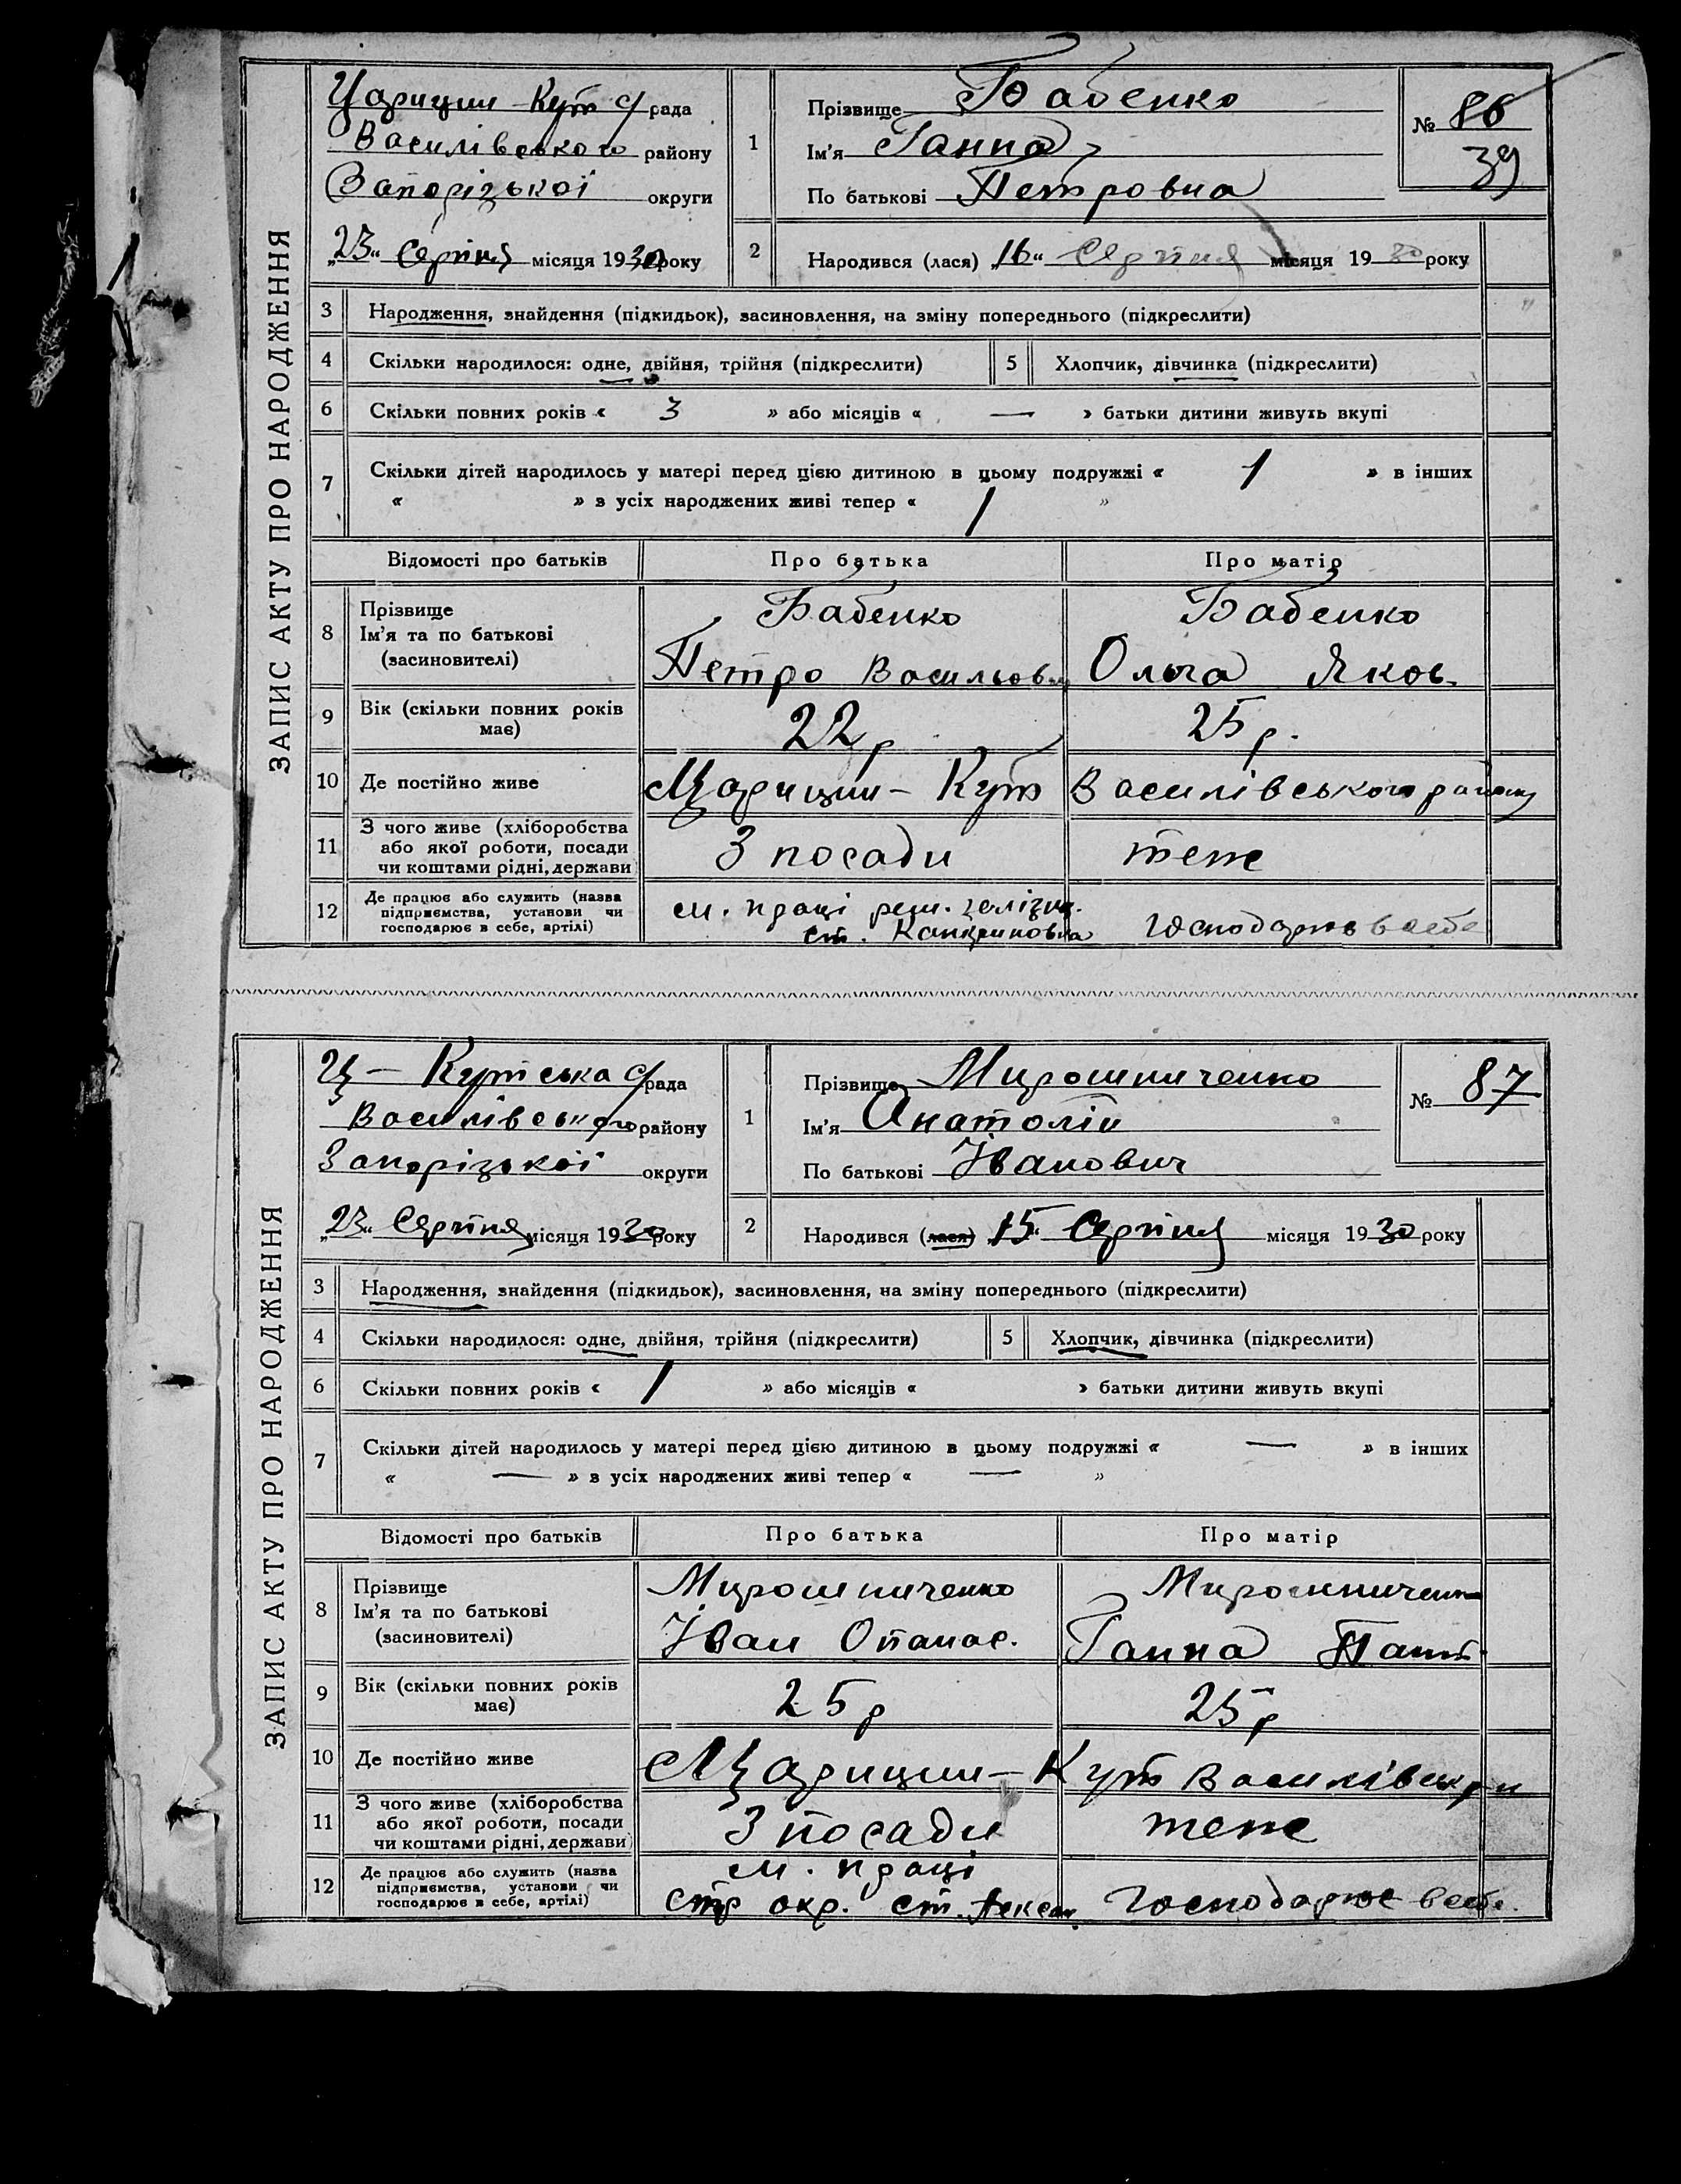 ЗАПИС АКТУ ПРО НАРОДЖЕННЯ
Царицин-Кут с/рада
Василівського району
Запорізької округи
„23“ Серпня місяця 1930 року
1 Прізвище Бабенко
Ім'я Ганна
По батькові Петровна
№ 86
39
2 Народився (лася) „16“ Серпня місяця 1930 року
3 Народження, знайдення (підкидьок), засиновлення, на зміну попереднього (підкреслити)
4 Скільки народилося: одне, двійня, трійня (підкреслити) 5 Хлопчик, дівчинка (підкреслити)
6 Скільки повних років « 3 » або місяців « — » батьки дитини живуть вкупі
7 Скільки дітей народилось у матері перед цією дитиною в цьому подружжі « 1 » в інших
« » з усіх народжених живі тепер « 1 »
Відомості про батьків Про батька Про матір
8 Прізвище Бабенко Бабенко
Ім'я та по батькові
(засиновителі) Петро Васильов. Ольга Яков.
9 Вік (скільки повних років має) 22 р 25 р.
10 Де постійно живе Царицин-Кут Василівського району
11 З чого живе (хліборобства
або якої роботи, посади
чи коштами рідні, держави) З посади теж
12 Де працює або служить (назва
підприємства, установи чи
господарює в себе, артілі) м. праці рем. залізн.
ст. Канкриновка Господарює в себе
ЗАПИС АКТУ ПРО НАРОДЖЕННЯ
Ц-Кутська с/рада
Василівського району
Запорізької округи
„23“ Серпня місяця 1930 року
1 Прізвище Мирошниченко
Ім'я Анатолій
По батькові Іванович
№ 87
2 Народився (лася) „15“ Серпня місяця 1930 року
3 Народження, знайдення (підкидьок), засиновлення, на зміну попереднього (підкреслити)
4 Скільки народилося: одне, двійня, трійня (підкреслити) 5 Хлопчик, дівчинка (підкреслити)
6 Скільки повних років « 1 » або місяців « » батьки дитини живуть вкупі
7 Скільки дітей народилось у матері перед цією дитиною в цьому подружжі « — » в інших
« — » з усіх народжених живі тепер « — »
Відомості про батьків Про батька Про матір
8 Прізвище Мирошниченко Мирошниченко
Ім'я та по батькові
(засиновителі) Іван Опанас. Ганна
9 Вік (скільки повних років має) 25 р 25 р
10 Де постійно живе Царицин-Кут
11 З чого живе (хліборобства
або якої роботи, посади
чи коштами рідні, держави) З посади теж
12 Де працює або служить (назва
підприємства, установи чи
господарює в себе, артілі) м. праці
стр окр. ст. Господарює в себе.